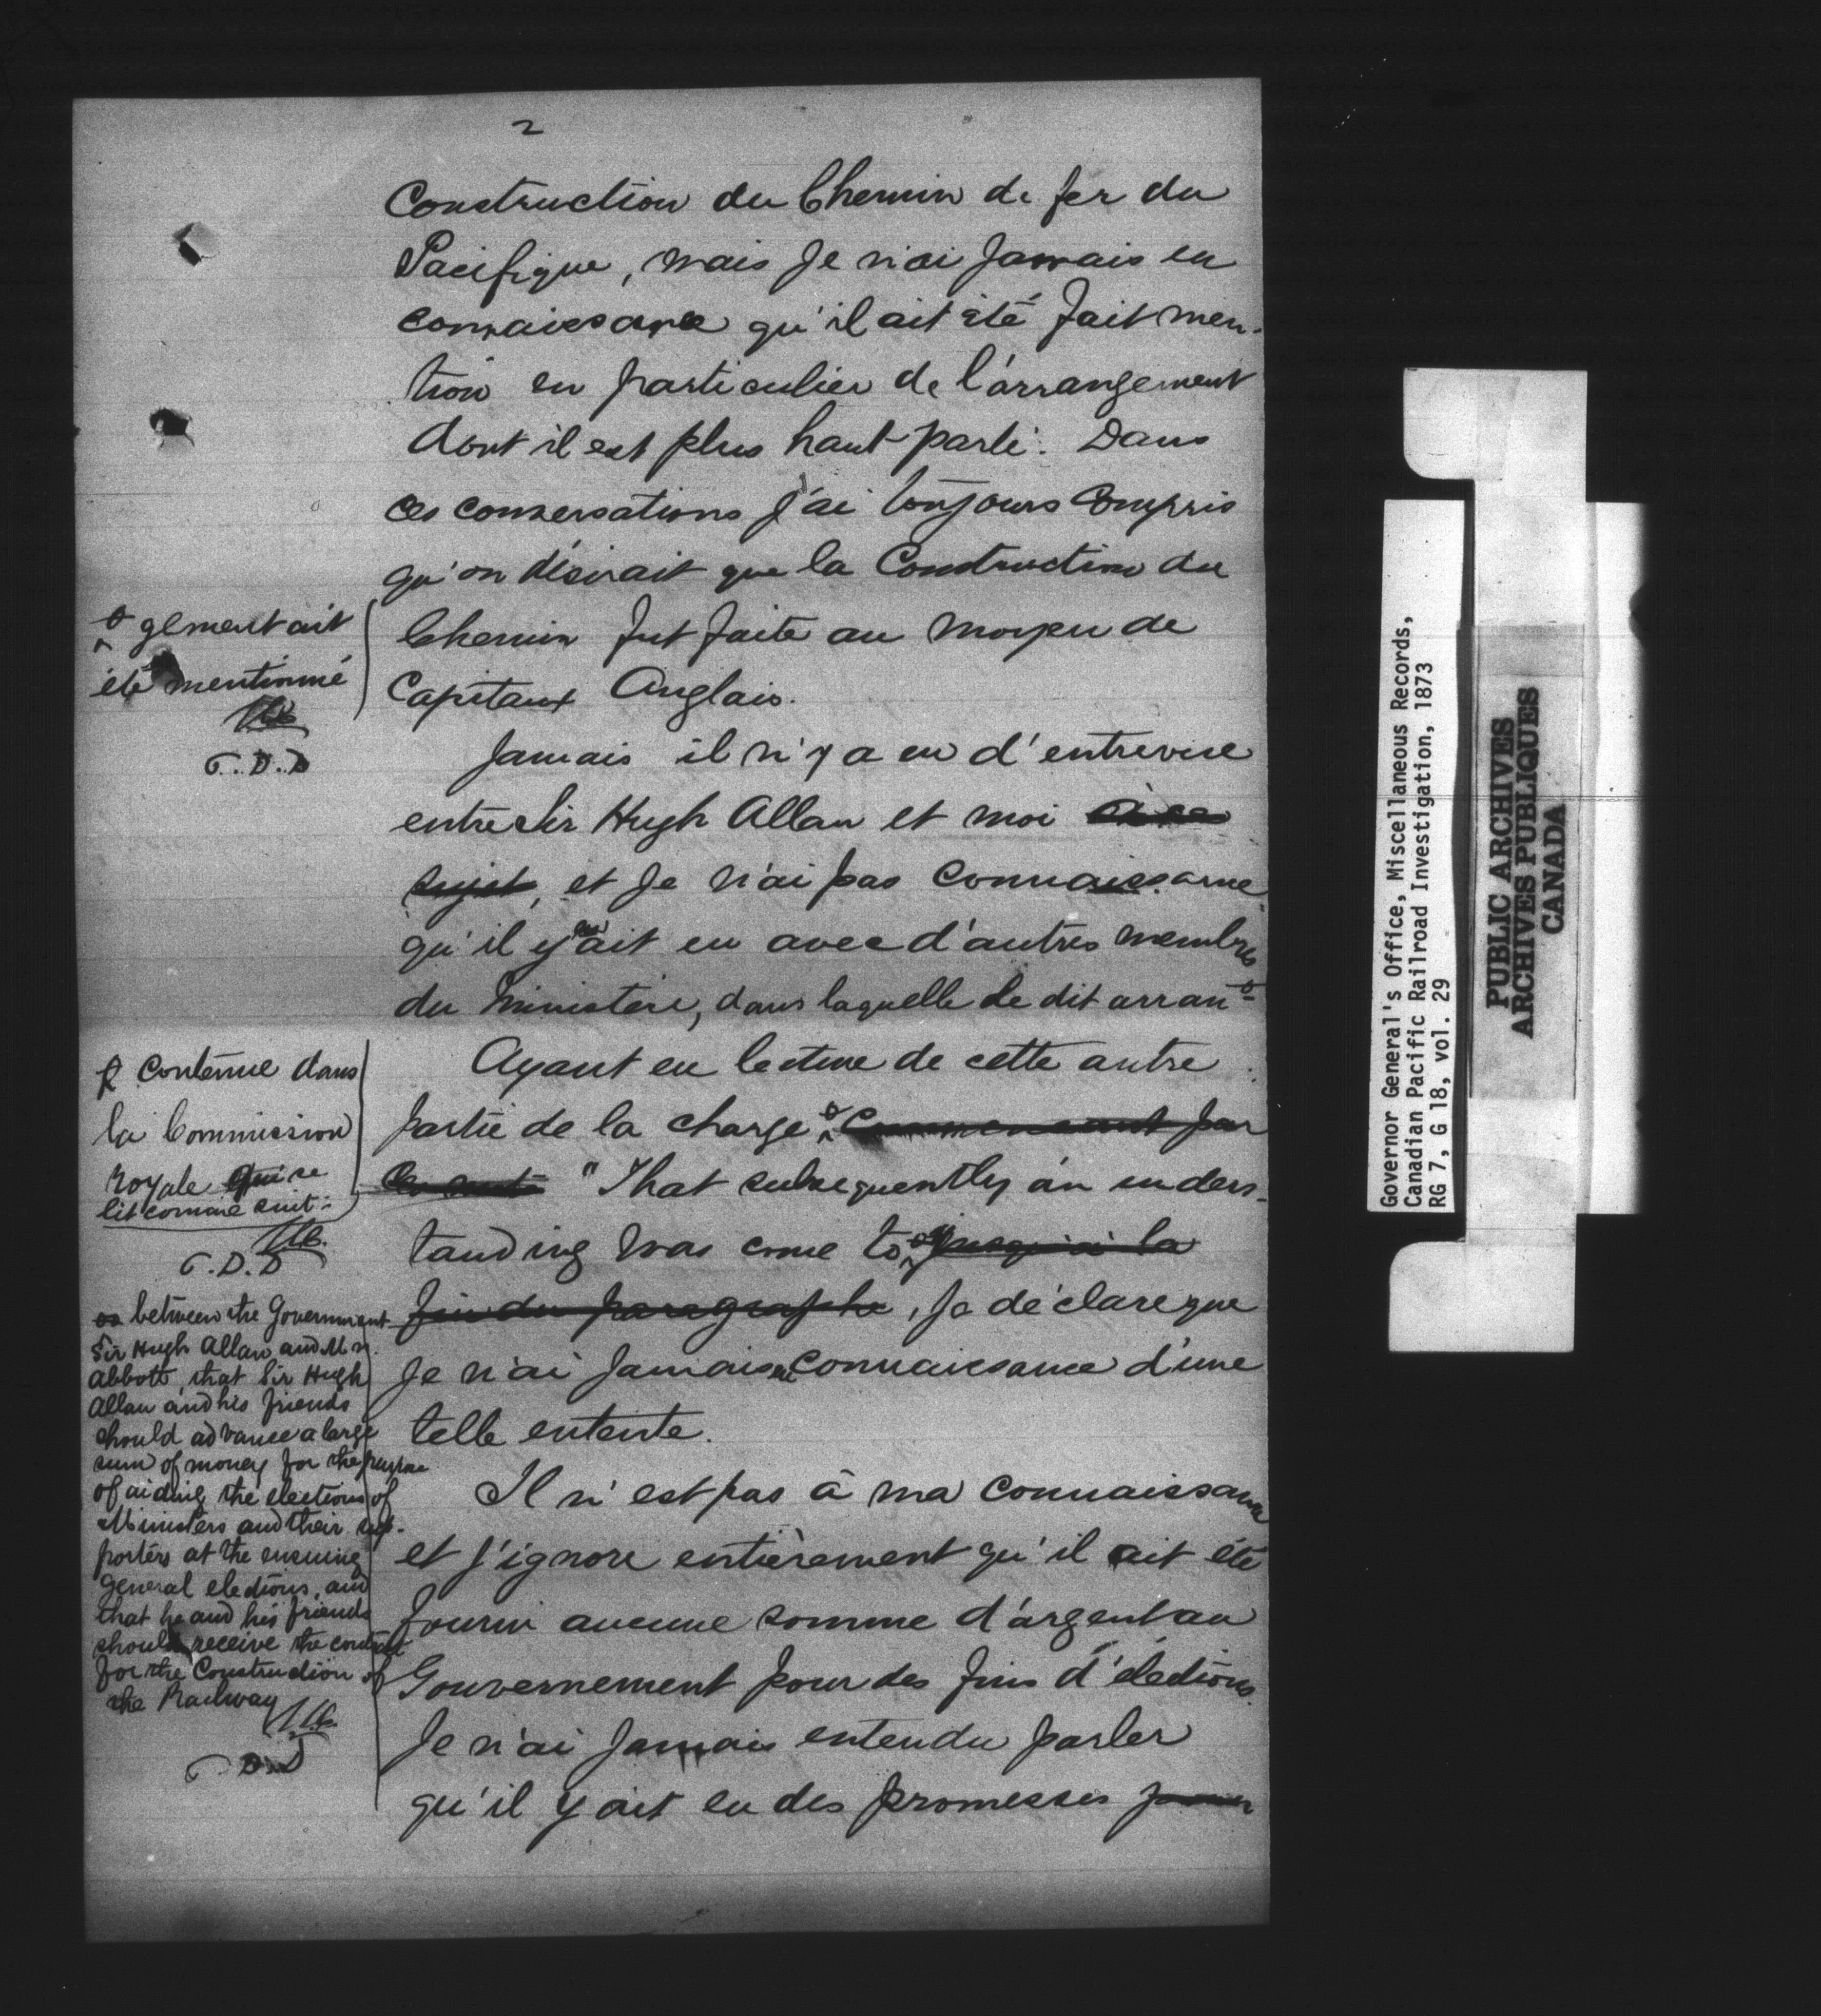 2
Construction du Chemin de fer du
Pacifique, mais Je n'ai Jamais eu
connaissance qu'il ait été fait men-
tion en particulier de l'arrangement
dont il est plus haut parlé. Dans
ces conversations J'ai toujours Compris
qu'on désirait que la Construction du
Chemin fut faite au moyen de
Capitaux Anglais.
Jamais il n'y a eu d'entrevue
entre Sir Hugh Allan et moi à ce
sujet, et Je n'ai pas connaissance
qu'il y en ait eu avec d'autres membres
du Ministère, dans laquelle le dit arran
gement ait
été mentionné
C.D.D
Ayant eu lecture de cette autre
partie de la charge Commencant par
les mots "That subsequently an unders-
contenue dans
la Commission
royale qui se
lit comme suit:
C.D.D
tanding was come to jusqu'à la
fin du paragraphe, Je déclare que
Je n'ai Jamais eu connaissance d'une
telle entente.
between the Government
Sir Hugh Allan and Mr.
Abbott, that Sir Hugh
Allan and his friends
should advance a large
sum of money for the purpose
of aiding the elections of
Ministers and their sup-
porters at the ensuing
general elections, and
that he and his friends
should receive the contract
for the Construction of
the Railway
Il n'est pas à ma connaissance
et J'ignore entièrement qu'il ait été
fourni aucune somme d'argent au
Gouvernement pour des fins d'élections.
Je n'ai Jamais entendu parler
qu'il y ait eu des promesses
Governor General's Office, Miscellaneous Records,
Canadian Pacific Railroad Investigation, 1873
RG 7, G 18, vol. 29
PUBLIC ARCHIVES
ARCHIVES PUBLIQUES
CANADA